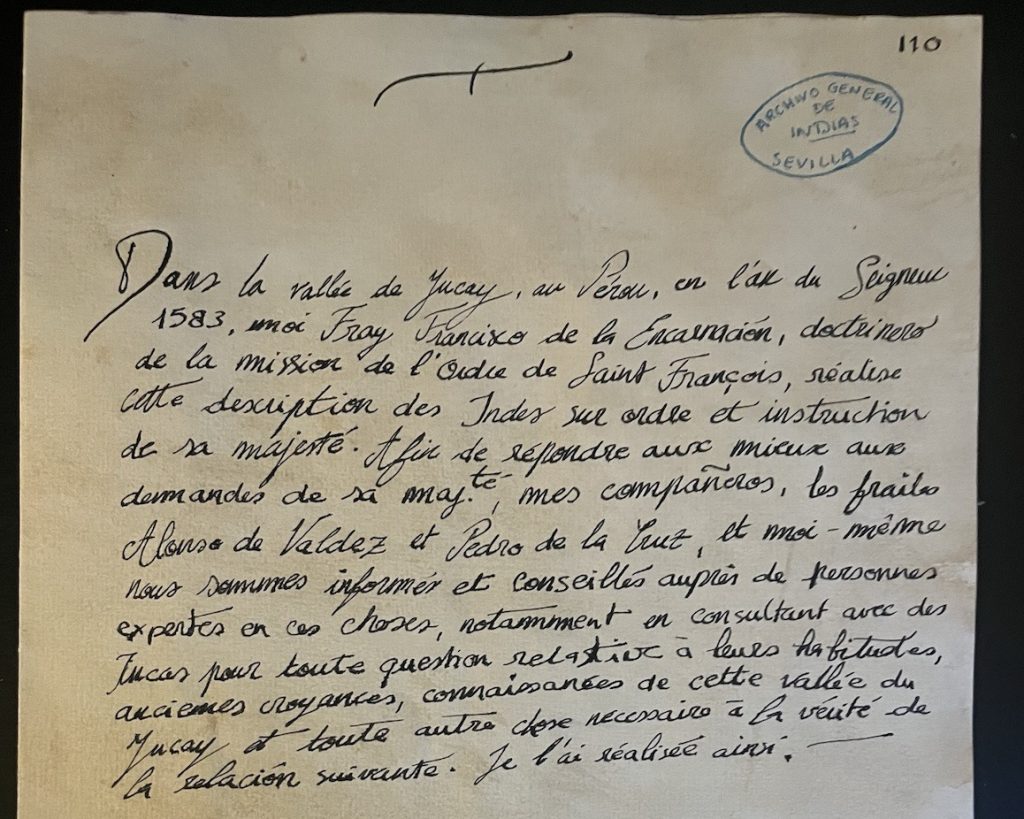 110
ARCHIVO GENERAL
DE
INDIAS
SEVILLA
Dans la vallée de Yucay, au Pérou, en l'an du Seigneur
1583, moi Fray Francisco de la Encarnación, doctrinero
de la mission de l'Ordre de Saint François, réalise
cette description des Indes sur ordre et instruction
de sa majesté. Afin de répondre aux mieux aux
demandes de sa maj.té, mes compañeros, les frailes
Alonso de Valdez et Pedro de la Cruz, et moi-même
nous sommes informés et conseillés auprès de personnes
expertes en ces choses, notamment en consultant avec des
Incas pour toute question relative à leurs habitudes,
anciennes croyances, connaissances de cette vallée du
Yucay et toute autre chose nécessaire à la vérité de
la relación suivante. Je l'ai réalisée ainsi.